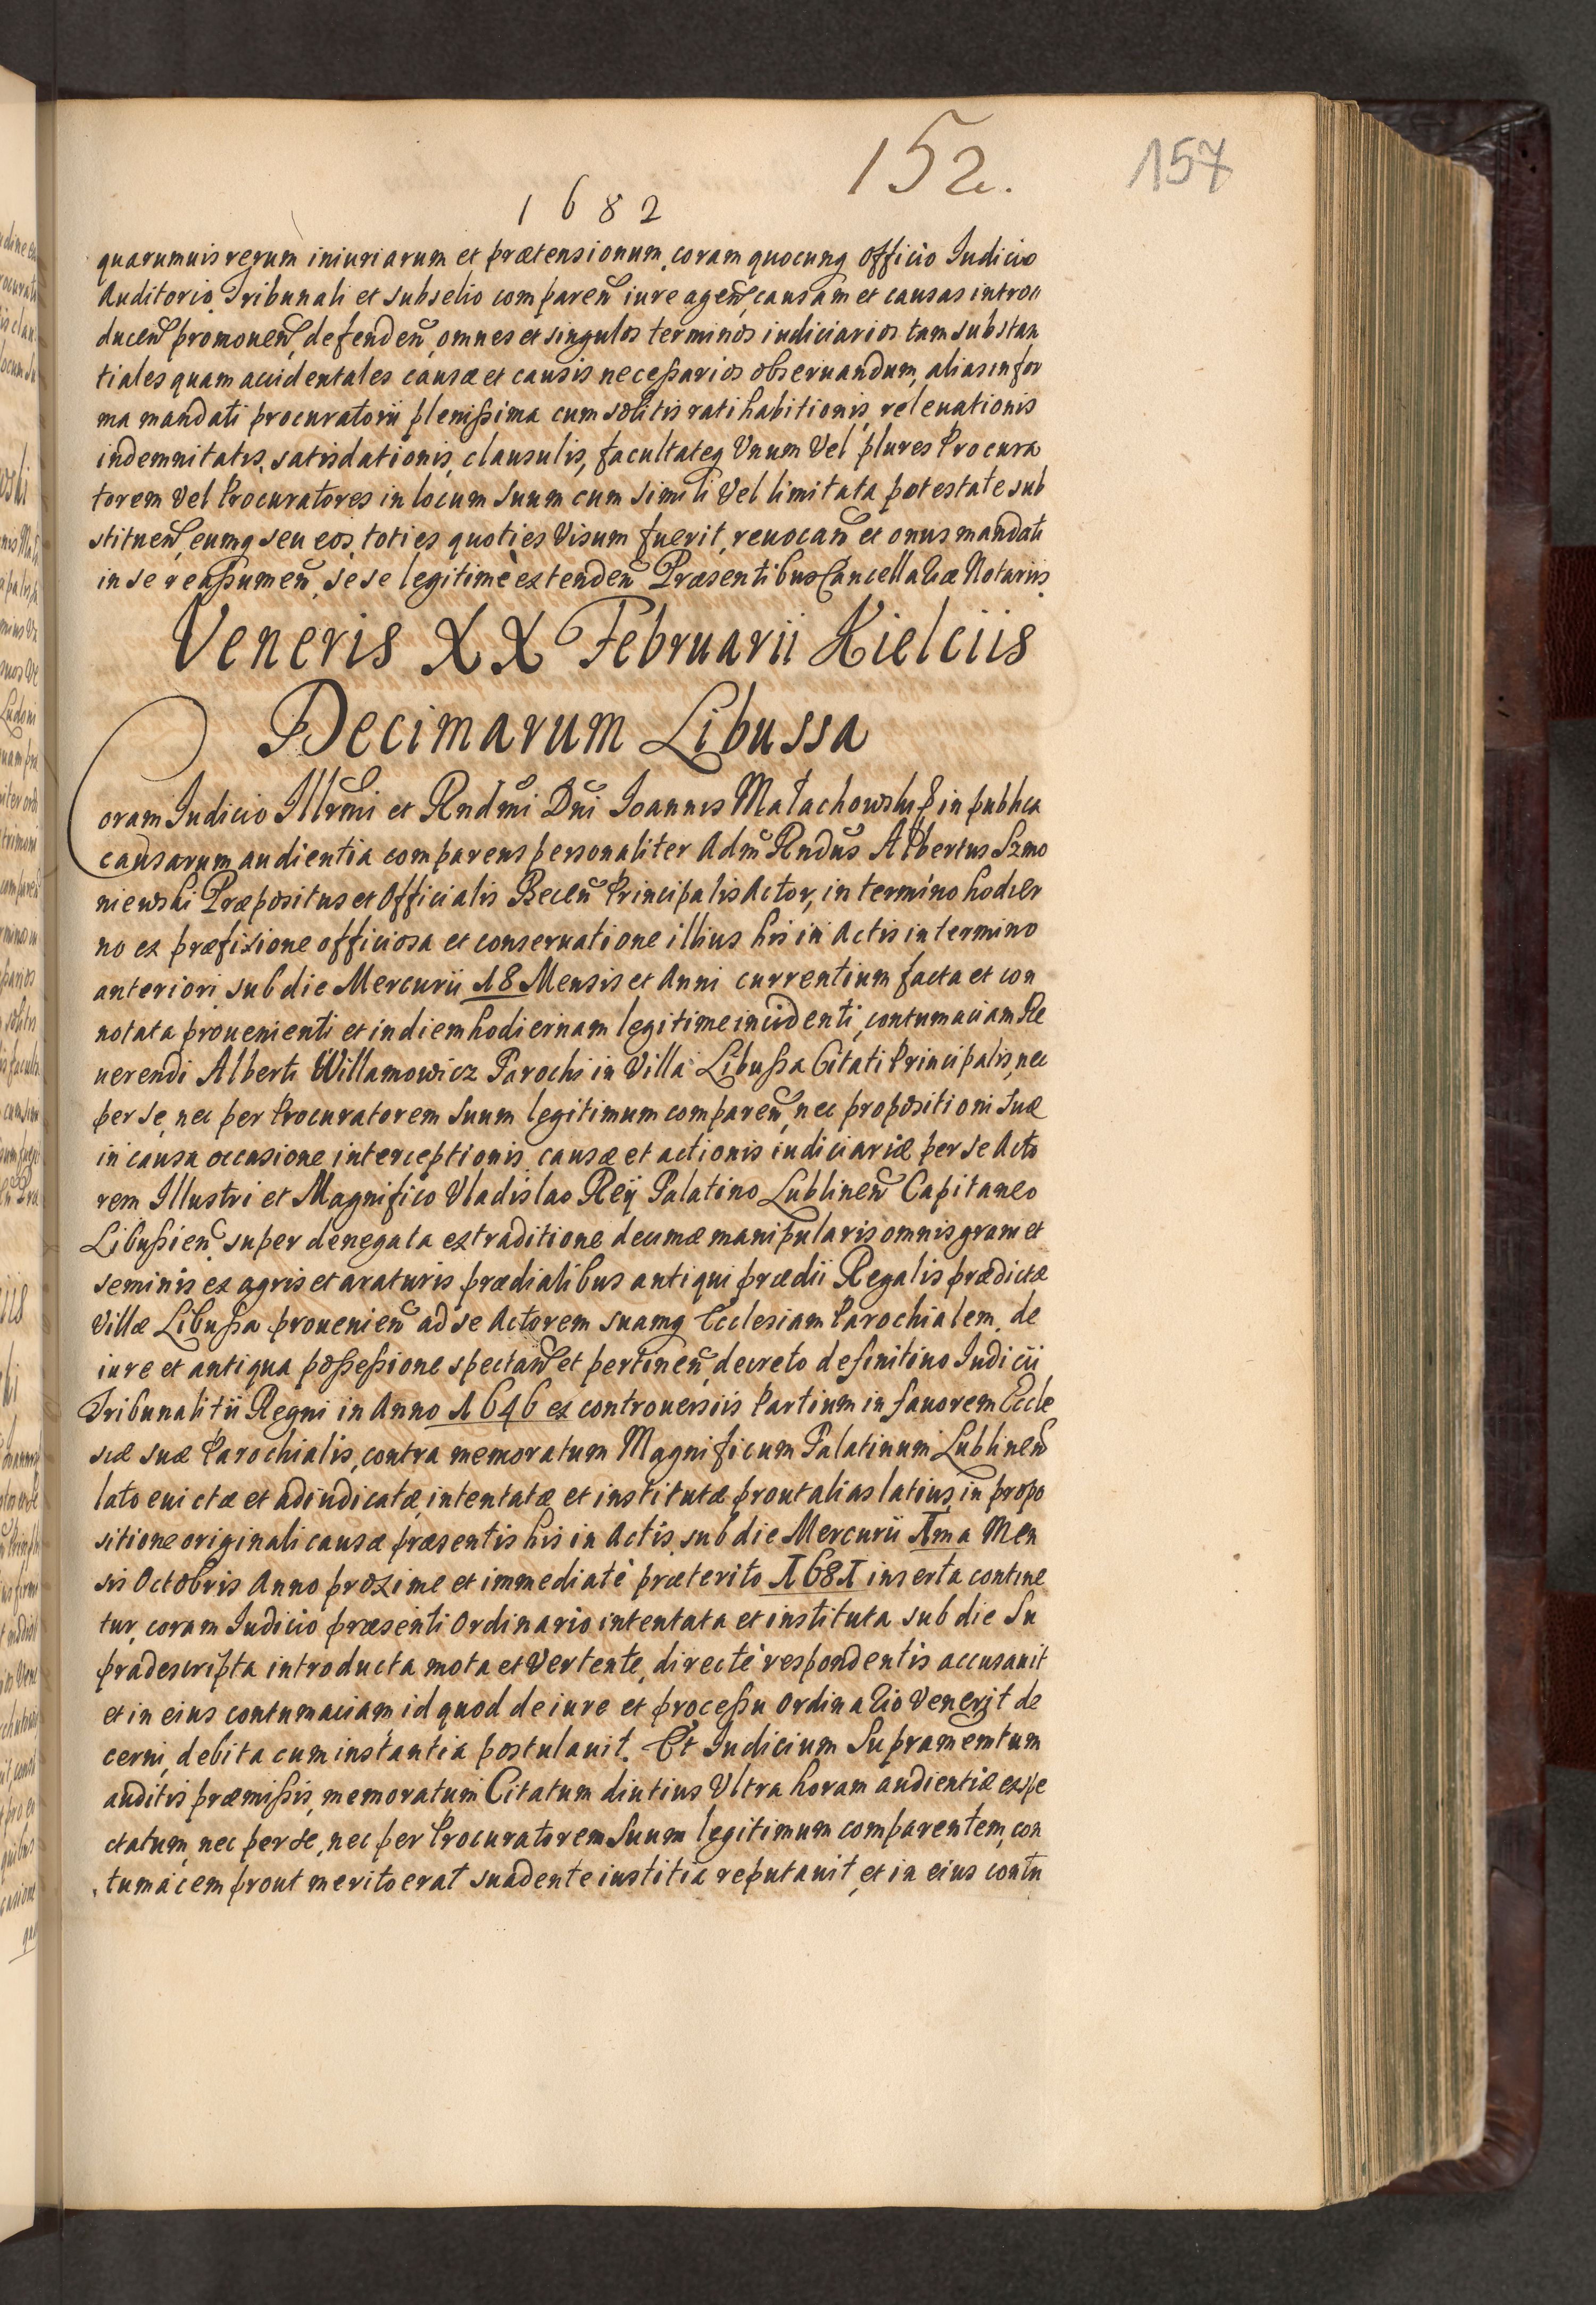 152.
157
1682
quarumuis rerum iniuriarum et prætensionum, coram quocunq Officio Iudicio
Auditorio Tribunali et subselio comparen̄ iure agen̄, causam et causas intro
ducen̄ promouen̄, defenden̄, omnes et singulos terminos iudiciarios tam substan
tiales quam accidentales causæ et causis neceßarios obseruandum, alias in for
ma mandati procuratorii plenißima cum solitis ratihabitionis, releuationis
indemnitatis, satisdationis, clausulis, facultateq Vnum Vel plures Procura
torem Vel Procuratores in locum Suum cum simili Vel limitata potestate sub
stituen̄, eumq seu eos, toties quoties Visum fuerit, reuocan̄ et onus mandati
in se reaßumen̄, sese legitimè extenden̄ Præsentibus Cancellariæ Notariis.
Veneris XX Februarii Kielciis
Decimarum Libussa
Coram Iudicio Illrmi et Rndmi Dni Ioannis Małachowski E in publica
causarum audientia comparens personaliter Adm Rndus Albertus Szmo
niewski Præpositus et Officialis Becen̄ Principalis Actor, in termino hodier
no ex præfixione officiosa et conseruatione illius his in Actis in termino
anteriori sub die Mercurii 18 Mensis et Anni currentium facta et con
notata prouenienti et in diem hodiernam legitime incidenti, contumaciam Re
uerendi Alberti Willamowicz Parochi in Villa Libußa Citati Principalis, nec
per se, nec per Procuratorem Suum legitimum comparen̄, nec propositioni Suæ
in causa occasione interceptionis causæ et actionis iudiciariæ per se Acto
rem Illustri et Magnifico Vladislao Reÿ Palatino Lublinen̄ Capitaneo
Libußien̄ super denegata extraditione decimæ manipularis omnis grani et
seminis ex agris et araturis prædialibus antiqui prædii Regalis prædictæ
Villæ Libußa prouenien̄ ad se Actorem suamq Ecclesiam Parochialem, de
iure et antiqua poßeßione spectan̄ et pertinen̄, decreto definitiuo Iudicii
Tribunalitii Regni in Anno 1646 ex controuersiis Partium in fauorem Eccle
siæ suæ Parochialis, contra memoratum Magnificum Palatinum Lublinen̄
lato euictæ et adiudicatæ, intentatæ et institutæ prout alias latius in propo
sitione originali causæ præsentis his in Actis sub die Mercurii 1ma Men
sis Octobris Anno proxime et immediatè præterito 1681 inserta contine
tur, coram Iudicio præsenti Ordinario intentata et instituta sub die Su
pradescripta introducta mota et Vertente, directè respondentis accusauit
et in eius contumaciam id quod de iure et proceßu Ordinario Venerit de
cerni, debita cum instantia postulauit. Et Iudicium Supramemtum
auditis præmißis, memoratum Citatum diutius Vltra horam audientiæ expe
ctatum, nec per se, nec per Procuratorem Suum legitimum comparentem, con
tumacem prout merito erat suadente iustitia reputauit, et in eius contu